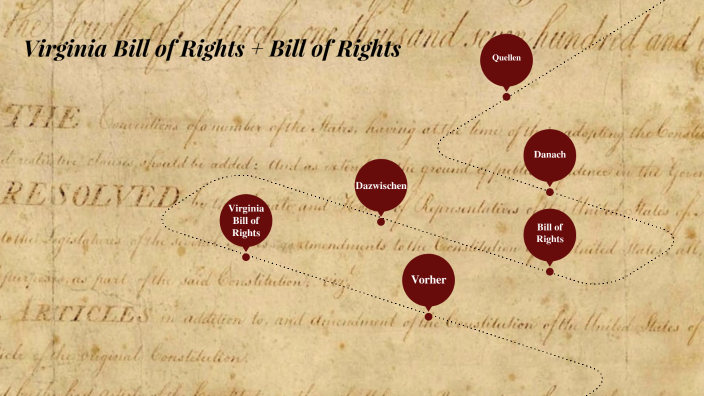 the fourth of March, one thousand seven hundred and
Virginia Bill of Rights + Bill of Rights
Quellen
THE Conventions of a number of the States, having at the time of their adopting the
restrictive clauses should be added: And as the ground of public in the
Danach
Dazwischen
RESOLVED by the and of Representatives of the United States
Virginia
Bill of
Rights
Bill of
Rights
to the Legislatures of the several as amendments to the Constitution of the United States, all
purposes, as part of the said Constitution;
Vorher
ARTICLES in addition to, and amendment of the Constitution of the United States of
of the original Constitution.